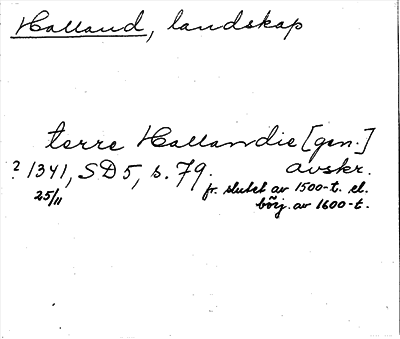 Halland, landskap
terre Hallandie [gen.]
? 1341, SD 5, s. 79. avskr.
25/11
fr. slutet av 1500-t. el.
börj. av 1600-t.